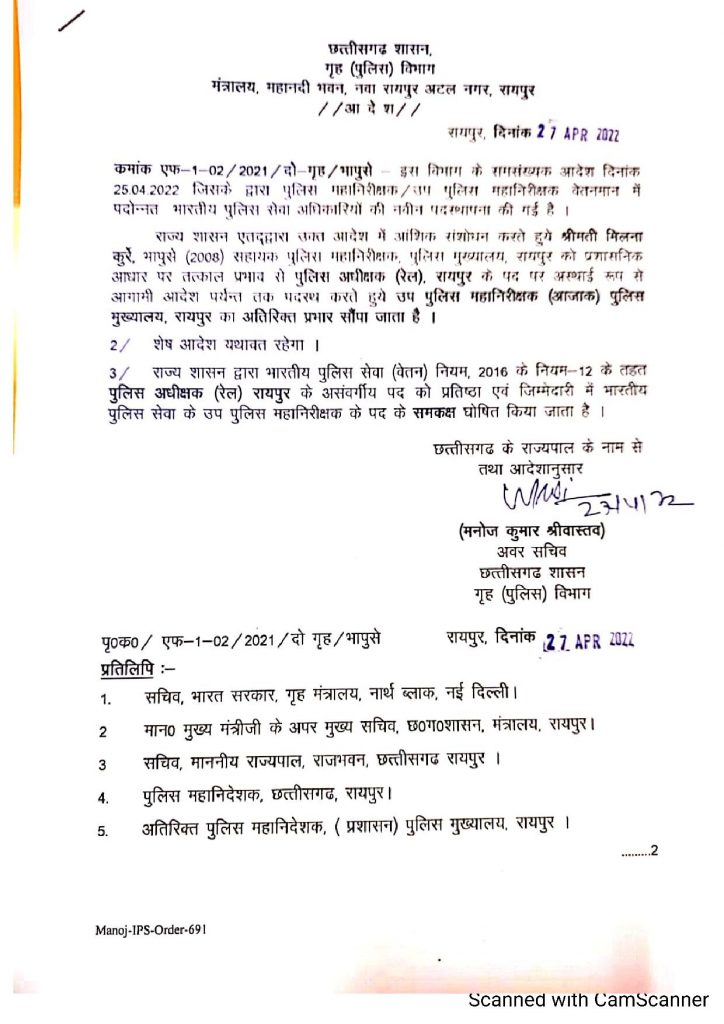 छत्तीसगढ शासन,
गृह (पुलिस) विभाग
मंत्रालय, महानदी भवन, नवा रायपुर अटल नगर, रायपुर
//आ दे श//
रायपुर, दिनांक 27 APR 2022
कमांक एफ-1-02/2021/दो-गृह/भापुसे - इस विभाग के समसंख्यक आदेश दिनांक
25.04.2022 जिसके द्वारा पुलिस महानिरीक्षक/उप पुलिस महानिरीक्षक वेतनमान में
पदोन्नत भारतीय पुलिस सेवा अधिकारियों की नवीन पदस्थापना की गई है ।
राज्य शासन एतद्द्वारा उक्त आदेश में आंशिक संशोधन करते हुये श्रीमती मिलना
कुर्रे, भापुसे (2008) सहायक पुलिस महानिरीक्षक, पुलिस मुख्यालय, रायपुर को प्रशासनिक
आधार पर तत्काल प्रभाव से पुलिस अधीक्षक (रेल), रायपुर के पद पर अस्थाई रूप से
आगामी आदेश पर्यन्त तक पदस्थ करते हुये उप पुलिस महानिरीक्षक (आजाक) पुलिस
मुख्यालय, रायपुर का अतिरिक्त प्रभार सौंपा जाता है ।
2/ शेष आदेश यथावत रहेगा ।
3/ राज्य शासन द्वारा भारतीय पुलिस सेवा (वेतन) नियम, 2016 के नियम-12 के तहत
पुलिस अधीक्षक (रेल) रायपुर के असंवर्गीय पद को प्रतिष्ठा एवं जिम्मेदारी में भारतीय
पुलिस सेवा के उप पुलिस महानिरीक्षक के पद के समकक्ष घोषित किया जाता है ।
छत्तीसगढ के राज्यपाल के नाम से
तथा आदेशानुसार
(मनोज कुमार श्रीवास्तव)
अवर सचिव
छत्तीसगढ शासन
गृह (पुलिस) विभाग
पृ0क0/ एफ-1-02/2021/दो गृह/भापुसे रायपुर, दिनांक 27 APR 2022
प्रतिलिपि :-
1. सचिव, भारत सरकार, गृह मंत्रालय, नार्थ ब्लाक, नई दिल्ली।
2 मान0 मुख्य मंत्रीजी के अपर मुख्य सचिव, छ0ग0शासन, मंत्रालय, रायपुर।
3 सचिव, माननीय राज्यपाल, राजभवन, छत्तीसगढ रायपुर ।
4. पुलिस महानिदेशक, छत्तीसगढ, रायपुर।
5. अतिरिक्त पुलिस महानिदेशक, ( प्रशासन) पुलिस मुख्यालय, रायपुर ।
.........2
Manoj-IPS-Order-691
Scanned with CamScanner